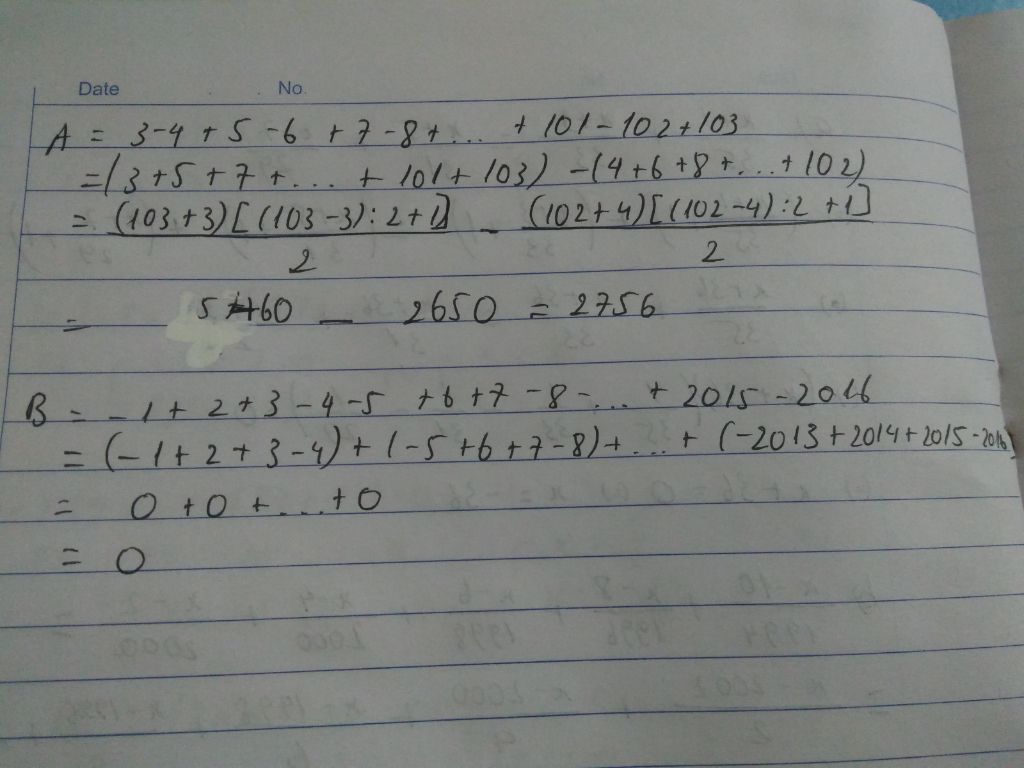 Date No.
A = 3-4+5-6+7-8+... + 101-102+103
=(3+5+7+...+101+103) -(4+6+8+...+102)
= (103+3)[(103-3):2+1] / 2 - (102+4)[(102-4):2+1] / 2
= 5460 - 2650 = 2756
B = -1+2+3-4-5+6+7-8-...+2015-2016
= (-1+2+3-4)+(-5+6+7-8)+...+(-2013+2014+2015-2016)
= 0+0+...+0
= 0